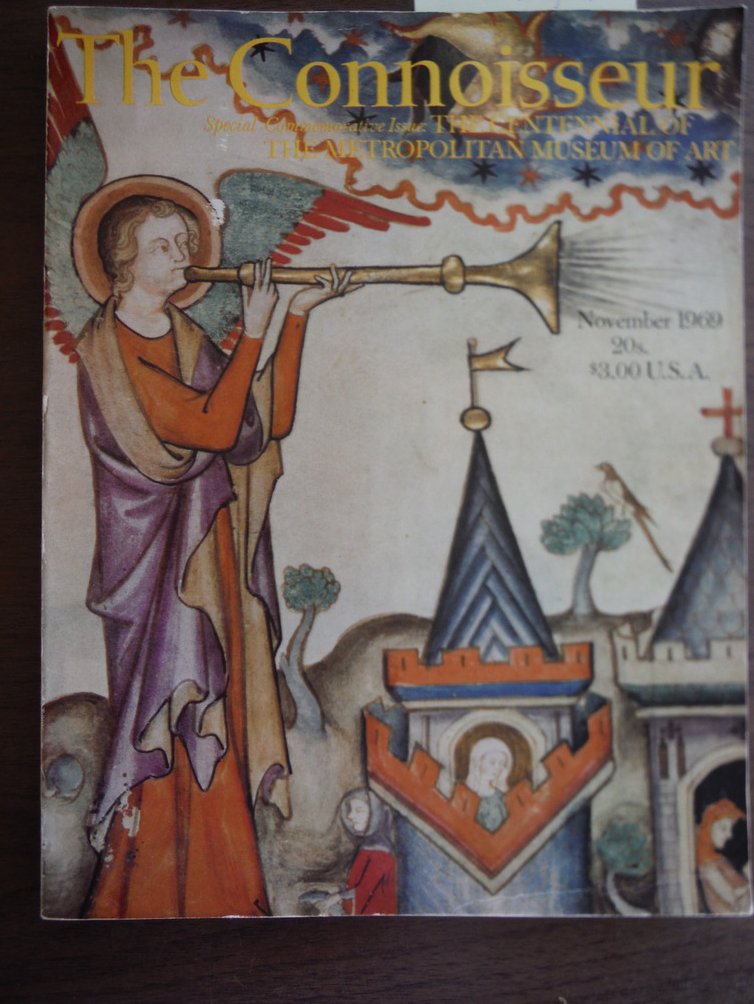 The Connoisseur
Special Commemorative Issue: THE CENTENNIAL OF
THE METROPOLITAN MUSEUM OF ART
November 1969
20s.
$3.00 U.S.A.